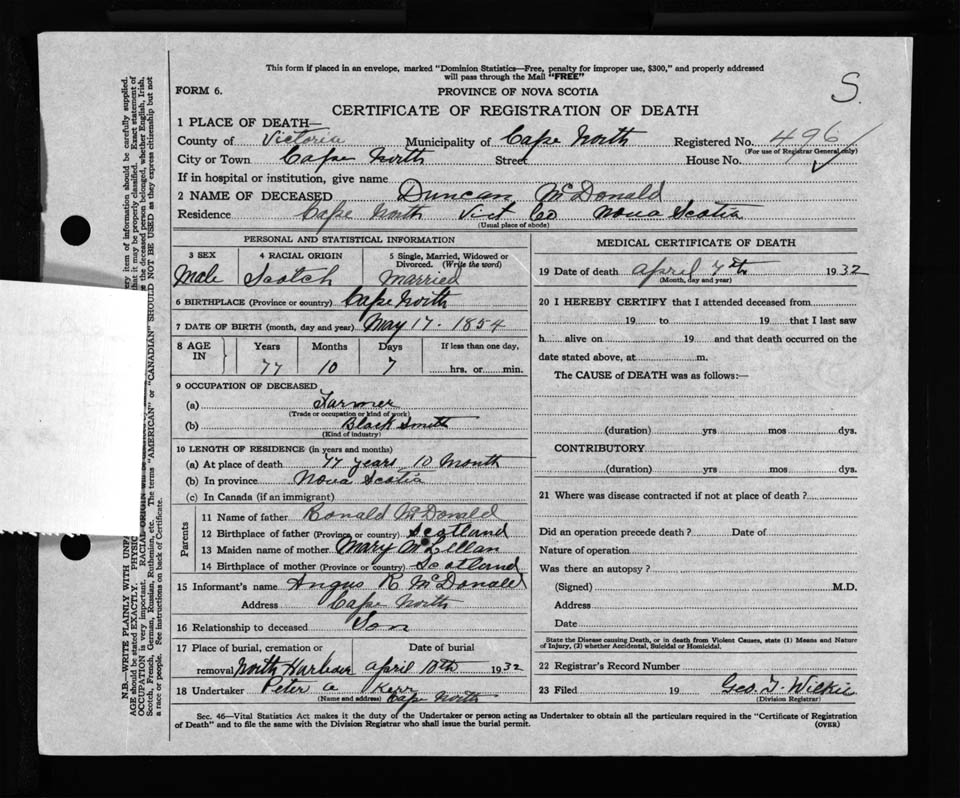 This form if placed in an envelope, marked "Dominion Statistics—Free, penalty for improper use, $300," and properly addressed
will pass through the Mail "FREE"
S.
FORM 6.
PROVINCE OF NOVA SCOTIA
CERTIFICATE OF REGISTRATION OF DEATH
1 PLACE OF DEATH—
County of Victoria Municipality of Cape North Registered No. 496
(For use of Registrar General only)
City or Town Cape North Street House No.
If in hospital or institution, give name
2 NAME OF DECEASED Duncan McDonald
Residence Cape North Vict Co Nova Scotia
(Usual place of abode)
PERSONAL AND STATISTICAL INFORMATION
3 SEX 4 RACIAL ORIGIN 5 Single, Married, Widowed or
Divorced. (Write the word)
Male Scotch Married
6 BIRTHPLACE (Province or country) Cape North
7 DATE OF BIRTH (month, day and year) May 17. 1854
8 AGE IN Years Months Days If less than one day,
77 10 7 hrs. or min.
9 OCCUPATION OF DECEASED
(a) Farmer
(Trade or occupation or kind of work)
(b) Black Smith
(Kind of industry)
10 LENGTH OF RESIDENCE (in years and months)
(a) At place of death 77 years 10 Month
(b) In province Nova Scotia
(c) In Canada (if an immigrant)
Parents
11 Name of father Ronald McDonald
12 Birthplace of father (Province or country) Scotland
13 Maiden name of mother Mary McLellan
14 Birthplace of mother (Province or country) Scotland
15 Informant's name Angus R McDonald
Address Cape North
16 Relationship to deceased Son
17 Place of burial, cremation or Date of burial
removal North Harbour April 10th 1932
18 Undertaker Peter a Kerr
(Name and address) Cape North
MEDICAL CERTIFICATE OF DEATH
19 Date of death April 7th 1932
(Month, day and year)
20 I HEREBY CERTIFY that I attended deceased from
19 to 19 that I last saw
h alive on 19 and that death occurred on the
date stated above, at m.
The CAUSE of DEATH was as follows:—
(duration) yrs mos dys.
CONTRIBUTORY
(duration) yrs mos dys.
21 Where was disease contracted if not at place of death?
Did an operation precede death? Date of
Nature of operation
Was there an autopsy?
(Signed) M.D.
Address
Date
State the Disease causing Death, or in death from Violent Causes, state (1) Means and Nature
of Injury, (2) whether Accidental, Suicidal or Homicidal.
22 Registrar's Record Number
23 Filed 19 Geo. T. Wilkie
(Division Registrar)
Sec. 46—Vital Statistics Act makes it the duty of the Undertaker or person acting as Undertaker to obtain all the particulars required in the "Certificate of Registration
of Death" and to file the same with the Division Registrar who shall issue the burial permit.
(OVER)
N.B.—WRITE PLAINLY WITH UNFA
ry item of information should be carefully supplied.
AGE should be stated EXACTLY. PHYSIC
that it may be properly classified. Exact statement of
OCCUPATION is very important. RACIAL ORIGIN
the deceased person belonged, whether English, Irish,
Scotch, French, German, Russian, Ruthenian, etc. The terms "AMERICAN" or "CANADIAN" SHOULD NOT BE USED as they express citizenship but not
a race or people. See instructions on back of Certificate.